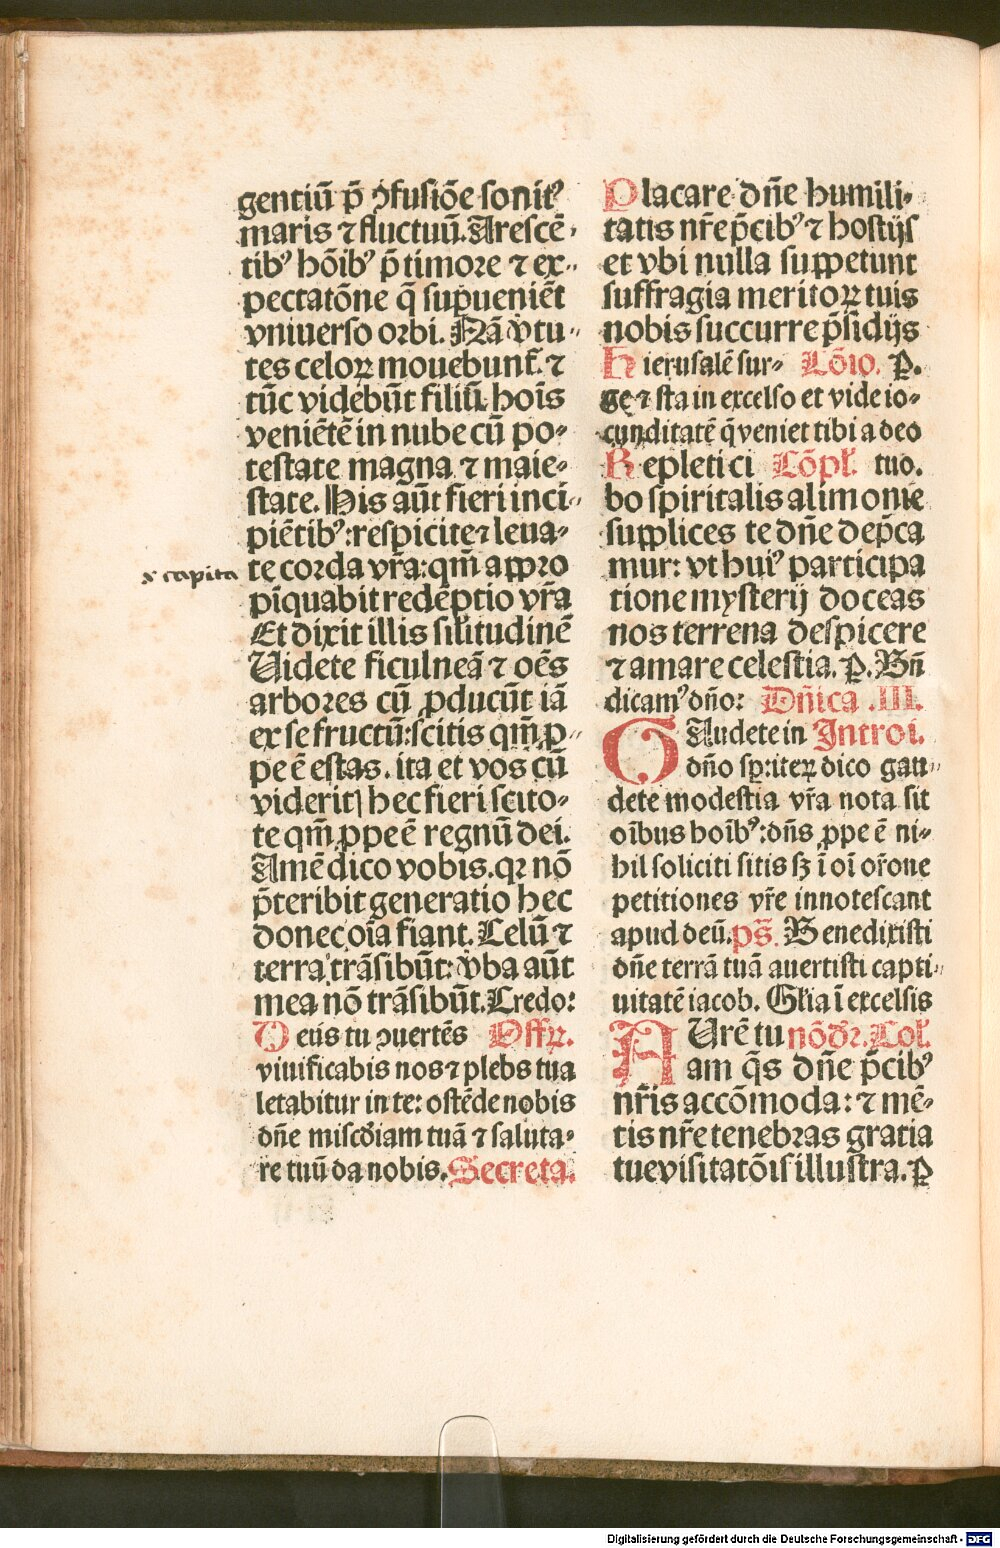 gentiū p̄ ↄfusiōe sonitꝰ
maris ⁊ fluctuū. Arescē-
tibꝰ hōibꝰ p̄ timore ⁊ ex-
pectatōne q̄ suꝑueniēt
vniuerso orbi. Nā v̄tu-
tes celoꝝ mouebunt̄. ⁊
tūc videbūt filiū hoīs
veniētē in nube cū po-
testate magna ⁊ maie-
state. His aūt fieri inci-
piētibꝰ: respicite ⁊ leua-
x capita
te corda vr̄a: qm̄ appro
pīquabit redēptio vr̄a
Et dixit illis sil̄itudinē
Videte ficulneā ⁊ oēs
arbores cū ꝓducūt iā
ex se fructū: scitis qm̄ ꝓ-
pe ē estas. ita et vos cū
viderit) hec fieri scito-
te qm̄ ꝓpe ē regnū dei.
Amē dico vobis. qꝛ nō
p̄teribit generatio hec
donec oīa fiant. Celū ⁊
terra trāsibūt: v̄ba aūt
mea nō trāsibūt. Credo:
Deus tu ↄuertēs Offꝝ.
viuificabis nos ⁊ plebs tua
letabitur in te: ostēde nobis
dn̄e misc̄diam tuā ⁊ saluta-
re tuū da nobis. Secreta.
Placare dn̄e humili-
tatis nr̄e p̄cibꝰ ⁊ hostijs
et vbi nulla suppetunt
suffragia meritoꝝ tuis
nobis succurre p̄sidijs
Hierusalē sur- Cōio. P.
ge ⁊ sta in excelso et vide io-
cunditatē q̄ veniet tibi a deo
Repleti ci Cōpl̄. tuo.
bo spiritalis alimonie
supplices te dn̄e dep̄ca
mur: vt huiꝰ participa
tione mysterij doceas
nos terrena despicere
⁊ amare celestia. P. Bn̄
dicamꝰ dn̄o: Dn̄ica .III.
GAudete in Introi.
dn̄o sꝑ: iteꝝ dico gau-
dete modestia vr̄a nota sit
oībus hoībꝰ: dn̄s ꝓpe ē ni-
hil soliciti sitis sꝫ ī oī or̄one
petitiones vr̄e innotescant
apud deū. ps̄. Benedixisti
dn̄e terrā tuā auertisti capti-
uitatē iacob. Gl̄ia ī excelsis
AUrē tu nō dr̄. Col̄.
am q̄s dn̄e p̄cibꝰ
nr̄is accōmoda: ⁊ mē-
tis nr̄e tenebras gratia
tue visitatōis illustra. P
Digitalisierung gefördert durch die Deutsche Forschungsgemeinschaft - DFG